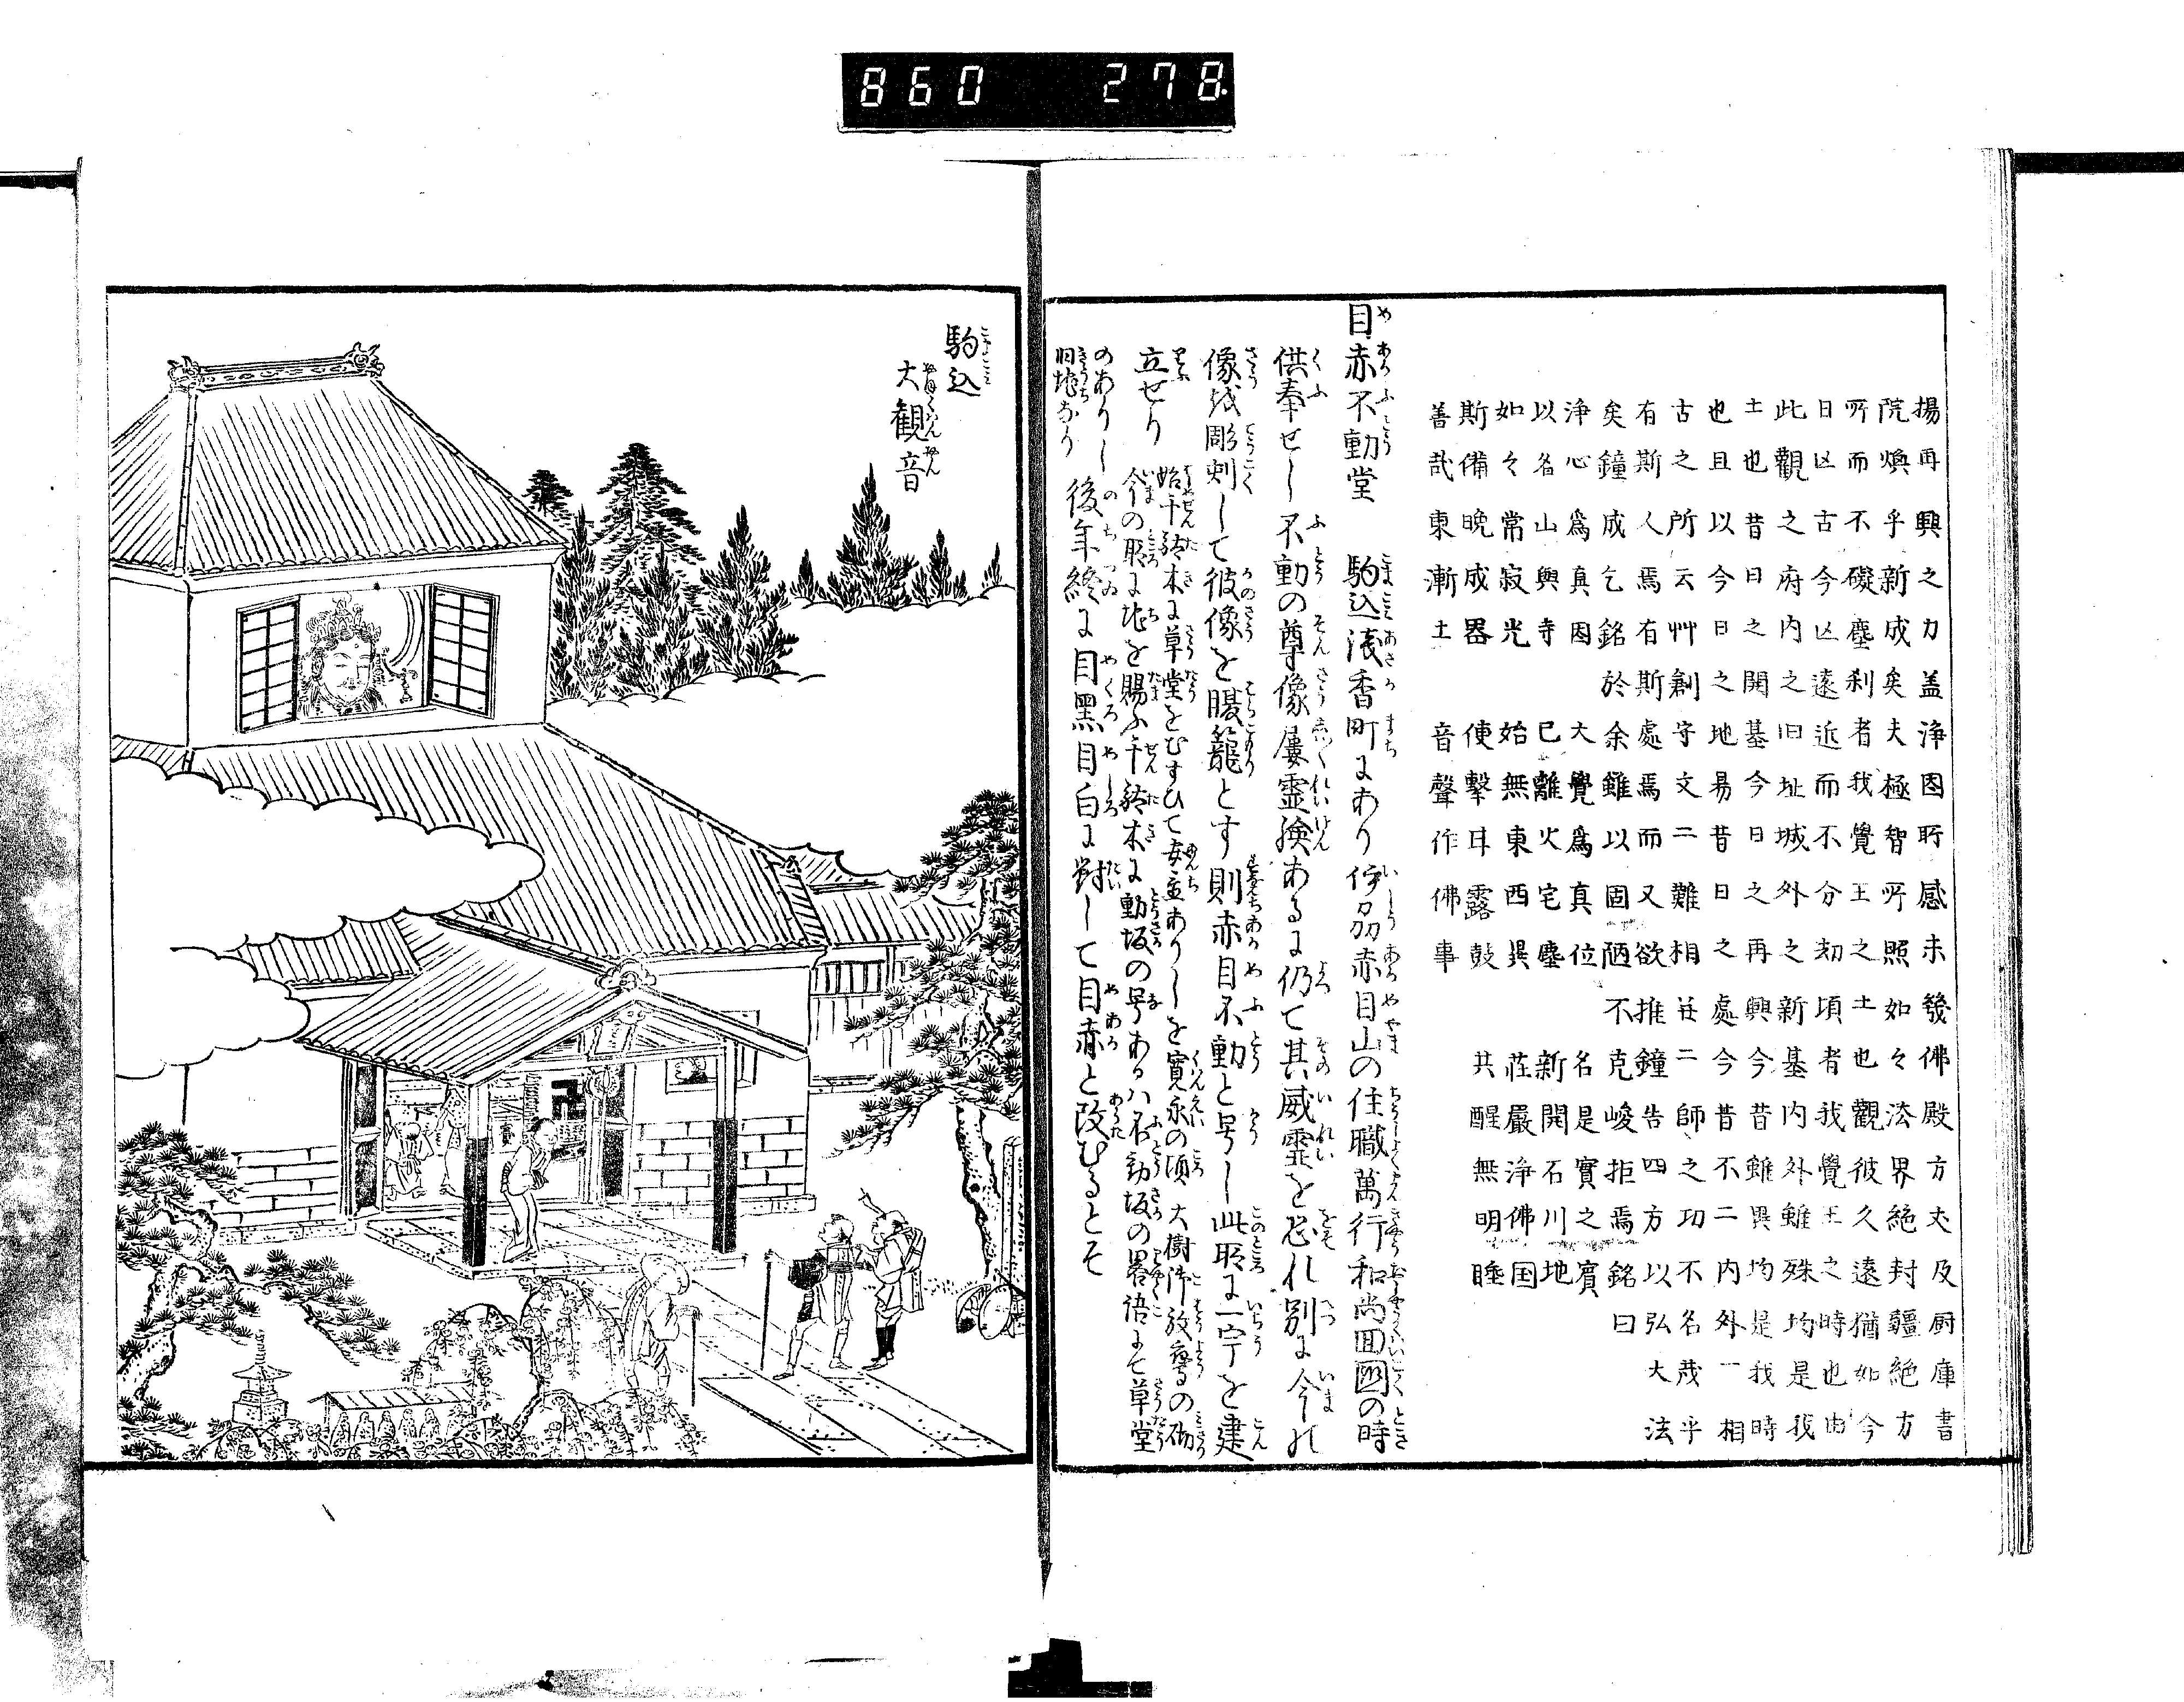 揚再興之力盖淨因所感未幾佛殿方丈及厨庫書
院煥乎新成矣夫極智所照如々法界絶封疆絶方
所而不礙塵刹者我覺王之土也觀彼久遠猶如今
日亙古今亙遠近而不分劫頃者我覺王之時也由
此觀之府内之旧址城外之新基内外雖殊均是我
土也昔日之開基今日之再興今昔雖異均是我時
也且以今日之地易昔日之處今昔不二内外一相
古之所云艸創守文二難相並二師之功不名茂乎
有斯人焉有斯處焉而又欲推鐘告四方以弘大法
矣鐘成乞銘於余雖以固陋不克峻拒焉銘曰
淨心爲真因 大覺爲真位 名是實之賓
以名山興寺 已離火宅塵 新開石川地
如々常寂光 始無東西異 莊嚴淨佛国
斯備晩成器 使擊耳露鼓 共醒無明睡
善哉東漸土 音聲作佛事
目赤不動堂 駒込淺香町にあり伊州赤目山の住職萬行和尚回國の時
供奉せし不動の尊像屢霊験あるに仍て其威霊を恐れ別に今の
像を彫刻して彼像を腹籠とす則赤目不動と号し此所に一宇を建
立せり 始千駄木に草堂をむすひて安置ありしを寛永の頃大樹御放鷹の砌
今の所に地を賜ふ千駄木に動坂の号あるハ不動坂の畧語にて草堂
のありし
旧地なり 後年終に目黒目白に對して目赤と改むるとそ
駒込
大観音
860 278